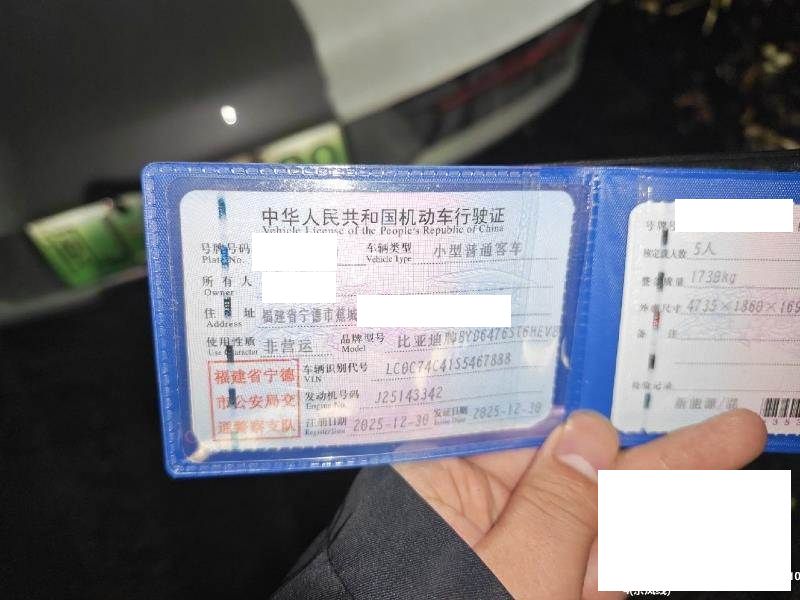 中华人民共和国机动车行驶证
Vehicle License of the People's Republic of China
号牌号码
Plate No.
车辆类型
Vehicle Type
小型普通客车
所有人
Owner
住址
Address
福建省宁德市蕉城
使用性质
Use Character
非营运
品牌型号
Model
比亚迪牌BYD6476ST6HEV8
福建省宁德
市公安局交
通警察支队
车辆识别代号
VIN
LC0C74C41S5467888
发动机号码
Engine No.
J25143342
注册日期
Register Date
2025-12-30
发证日期
Issue Date
2025-12-30
号牌号码
核定载人数
5人
整备质量
1730kg
外廓尺寸
4735×1860×165
备注
检验记录